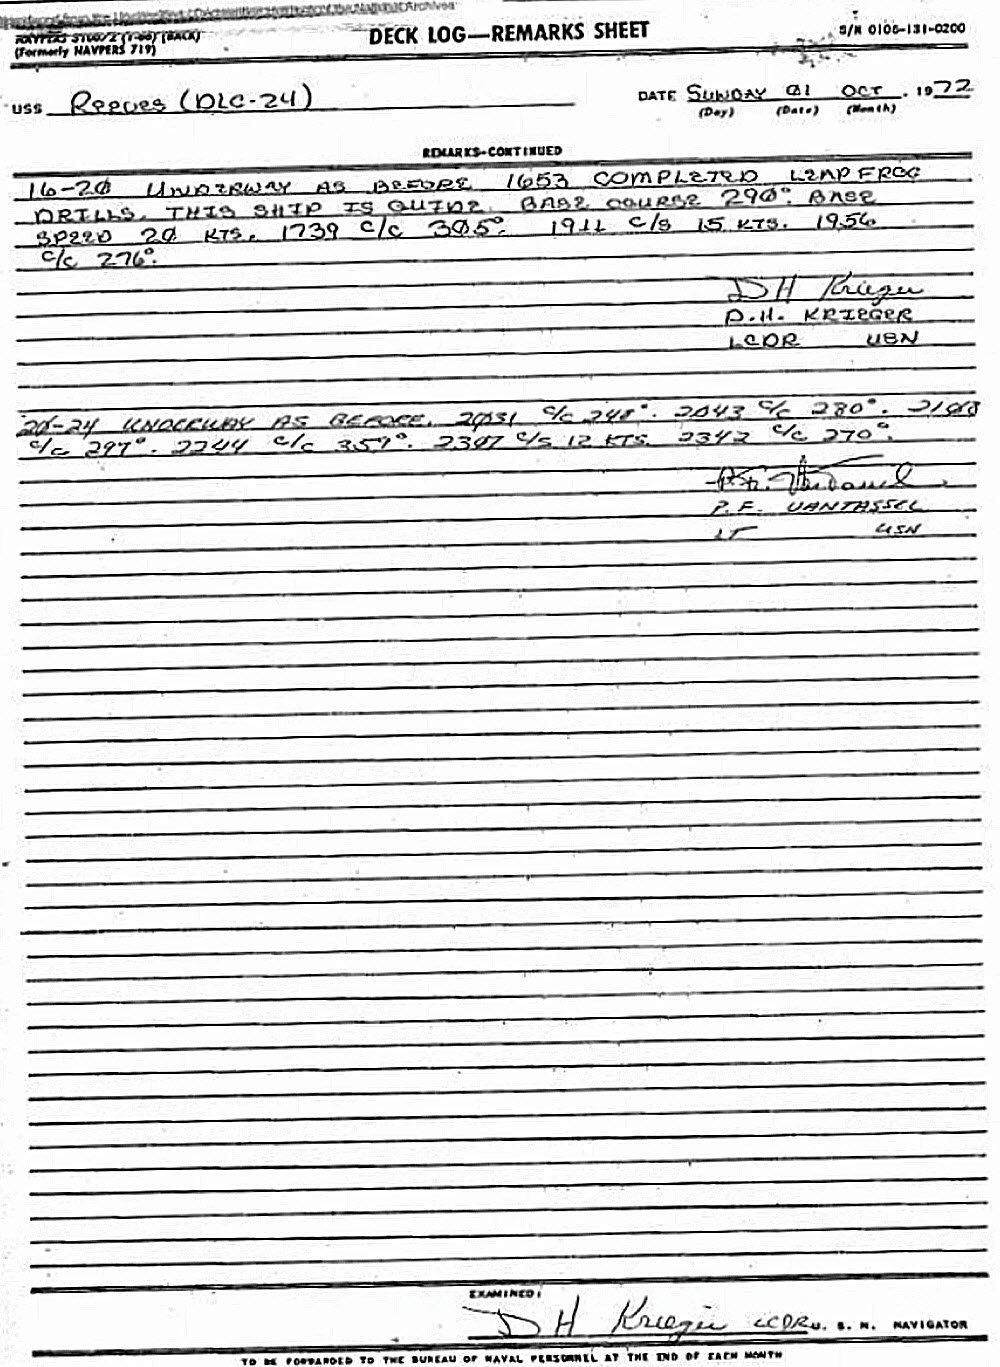 Reproduced from the Unclassified / Declassified Holdings of the National Archives
NAVPERS 3100/2 (7-66) (BACK)
(Formerly NAVPERS 719)
DECK LOG—REMARKS SHEET
S/N 0106-131-0200
USS Reeves (DLG-24)
DATE SUNDAY 01 OCT , 1972
(Day) (Date) (Month)
REMARKS-CONTINUED
16-20 UNDERWAY AS BEFORE 1653 COMPLETED LEAP FROG
DRILLS. THIS SHIP IS GUIDE. BASE COURSE 290°. BASE
SPEED 20 KTS. 1739 C/C 305°. 1911 C/S 15 KTS. 1956
C/C 276°.
D H Krieger
D.H. KRIEGER
LCDR USN
20-24 UNDERWAY AS BEFORE. 2031 C/C 248°. 2043 C/C 280°. 2108
C/C 297°. 2244 C/C 359°. 2307 C/S 12 KTS. 2342 C/C 270°.
P.F. VanTassel
P.F. VANTASSEL
LT USN
EXAMINED:
D H Krieger LCDR U. S. N. NAVIGATOR
TO BE FORWARDED TO THE BUREAU OF NAVAL PERSONNEL AT THE END OF EACH MONTH